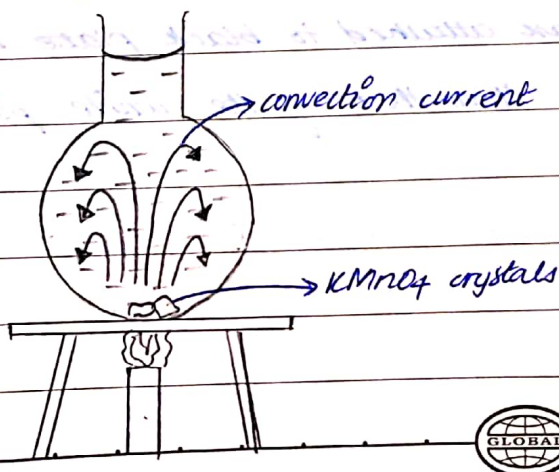 convection current
KMnO4 crystals
GLOBAL